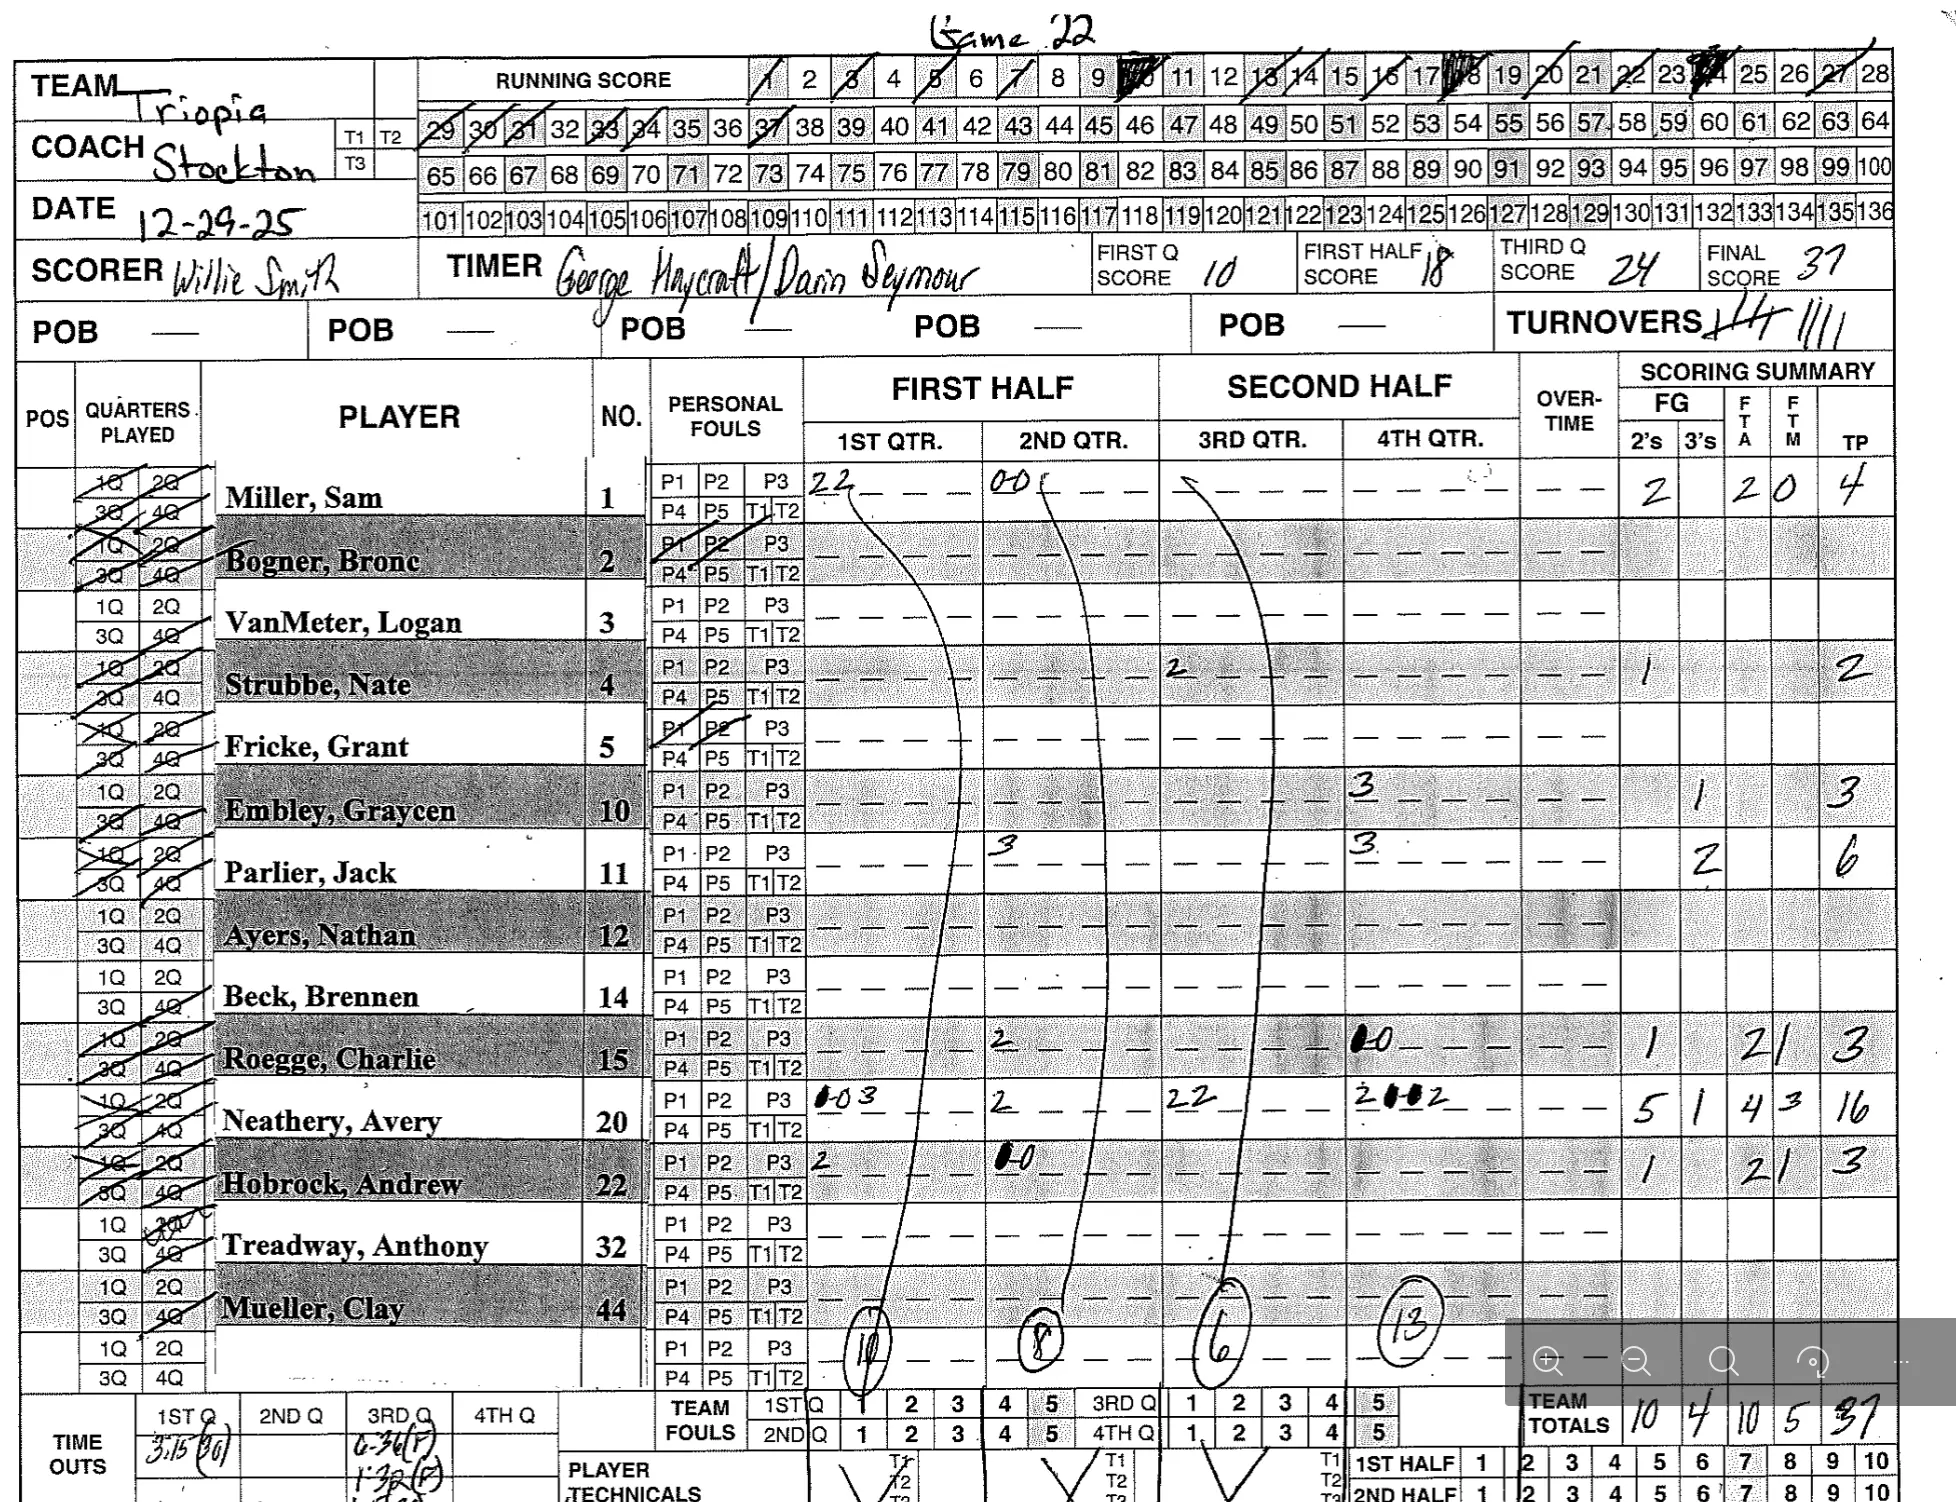 Game 22
TEAM Triopia
RUNNING SCORE 1 2 3 4 5 6 7 8 9 10 11 12 13 14 15 16 17 18 19 20 21 22 23 24 25 26 27 28
29 30 31 32 33 34 35 36 37 38 39 40 41 42 43 44 45 46 47 48 49 50 51 52 53 54 55 56 57 58 59 60 61 62 63 64
COACH Stockton T1 T2 T3
65 66 67 68 69 70 71 72 73 74 75 76 77 78 79 80 81 82 83 84 85 86 87 88 89 90 91 92 93 94 95 96 97 98 99 100
DATE 12-29-25
101 102 103 104 105 106 107 108 109 110 111 112 113 114 115 116 117 118 119 120 121 122 123 124 125 126 127 128 129 130 131 132 133 134 135 136
SCORER Willie Smith TIMER George Haycraft/Darin Seymour FIRST Q SCORE 10 FIRST HALF SCORE 18 THIRD Q SCORE 24 FINAL SCORE 37
POB — POB — POB — POB — POB — TURNOVERS
POS QUARTERS PLAYED PLAYER NO. PERSONAL FOULS FIRST HALF SECOND HALF OVER-TIME SCORING SUMMARY
1ST QTR. 2ND QTR. 3RD QTR. 4TH QTR. FG 2's 3's FTA FTM TP
1Q 2Q 3Q 4Q Miller, Sam 1 P1 P2 P3 P4 P5 T1 T2 22 00 2 2 0 4
1Q 2Q 3Q 4Q Bogner, Bronc 2 P1 P2 P3 P4 P5 T1 T2
1Q 2Q 3Q 4Q VanMeter, Logan 3 P1 P2 P3 P4 P5 T1 T2
1Q 2Q 3Q 4Q Strubbe, Nate 4 P1 P2 P3 P4 P5 T1 T2 2 1 2
1Q 2Q 3Q 4Q Fricke, Grant 5 P1 P2 P3 P4 P5 T1 T2
1Q 2Q 3Q 4Q Embley, Graycen 10 P1 P2 P3 P4 P5 T1 T2 3 1 3
1Q 2Q 3Q 4Q Parlier, Jack 11 P1 P2 P3 P4 P5 T1 T2 3 3 2 6
1Q 2Q 3Q 4Q Ayers, Nathan 12 P1 P2 P3 P4 P5 T1 T2
1Q 2Q 3Q 4Q Beck, Brennen 14 P1 P2 P3 P4 P5 T1 T2
1Q 2Q 3Q 4Q Roegge, Charlie 15 P1 P2 P3 P4 P5 T1 T2 2 0 1 2 1 3
1Q 2Q 3Q 4Q Neathery, Avery 20 P1 P2 P3 P4 P5 T1 T2 03 2 22 2 2 5 1 4 3 16
1Q 2Q 3Q 4Q Hobrock, Andrew 22 P1 P2 P3 P4 P5 T1 T2 2 0 1 2 1 3
1Q 2Q 3Q 4Q Treadway, Anthony 32 P1 P2 P3 P4 P5 T1 T2
1Q 2Q 3Q 4Q Mueller, Clay 44 P1 P2 P3 P4 P5 T1 T2
1Q 2Q 3Q 4Q P1 P2 P3 P4 P5 T1 T2 10 8 6 13
TIME OUTS 1ST Q 2ND Q 3RD Q 4TH Q TEAM FOULS 1ST Q 1 2 3 4 5 3RD Q 1 2 3 4 5 TEAM TOTALS 10 4 10 5 37
3:15 (30) 0:36(F) 2ND Q 1 2 3 4 5 4TH Q 1 2 3 4 5
1:32(F) PLAYER TECHNICALS T1 T2 T1 T2 T1 T2 1ST HALF 1 2 3 4 5 6 7 8 9 10
2ND HALF 1 2 3 4 5 6 7 8 9 10